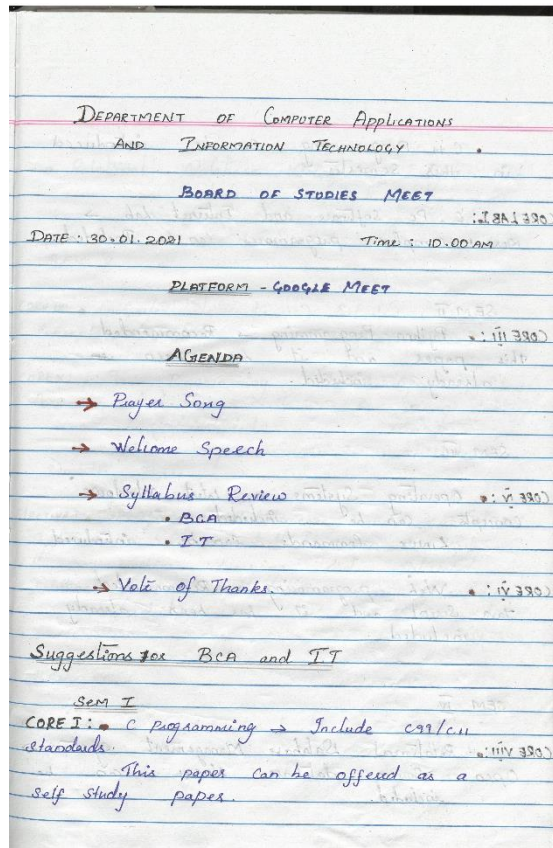 DEPARTMENT OF COMPUTER APPLICATIONS
AND INFORMATION TECHNOLOGY.
BOARD OF STUDIES MEET
DATE : 30.01.2021 Time : 10.00 AM
PLATFORM - GOOGLE MEET
AGENDA
→ Prayer Song
→ Welcome Speech
→ Syllabus Review
• BCA
• IT
→ Vote of Thanks.
Suggestions for BCA and IT
Sem I
CORE I: • C programming → Include C99/C11
standards.
This paper can be offered as a
self study paper.